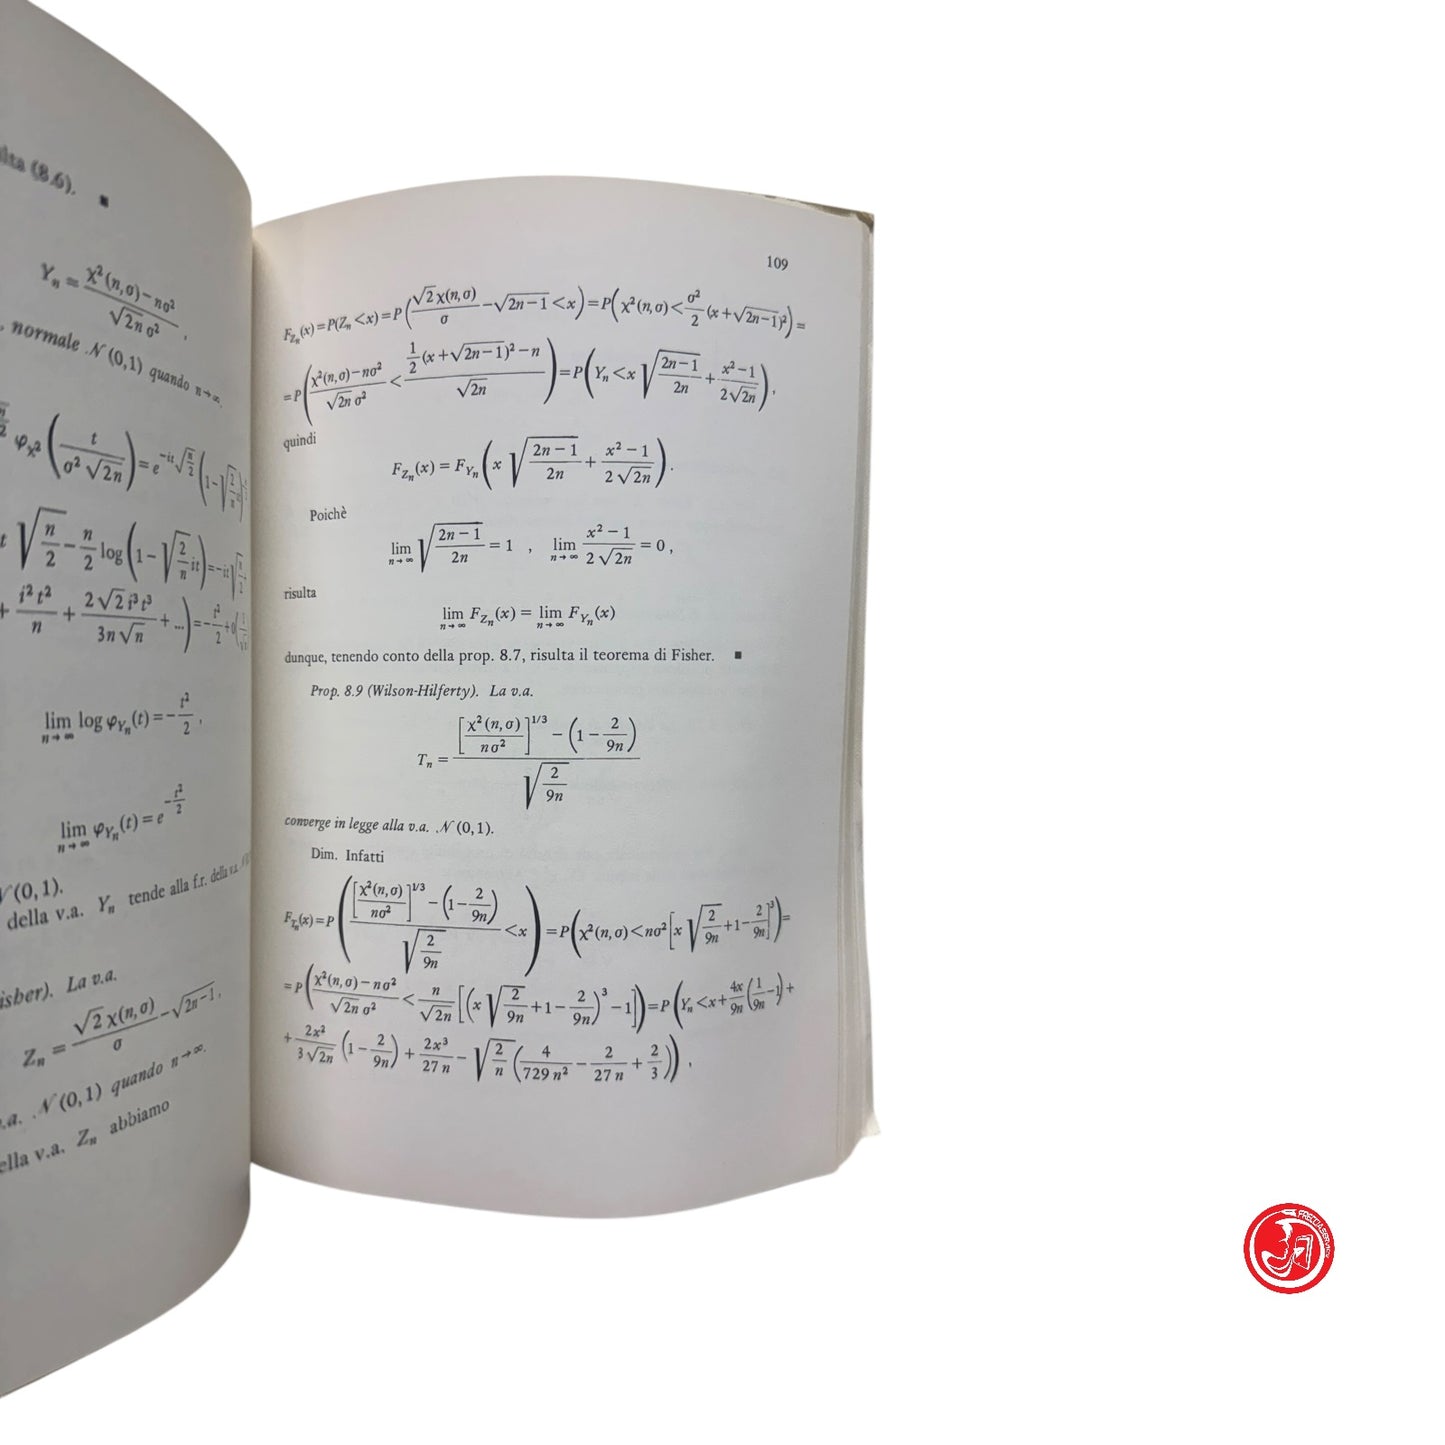 lta (8.6). ■
Yₙ = (χ²(n,σ) − nσ²) / (√(2n) σ²) ,
, normale 𝒩(0,1) quando n→∞.
φ_χ² ( t / (σ² √(2n)) ) = e^(−it√(n/2)) (1 − √(2/n)
t √(n/2) − n/2 log (1 − √(2/n) it) = −it √
+ i²t²/n + 2√2 i³t³ / (3n√n) + ...) = −t²/2 + 0(
lim_{n→∞} log φ_Yₙ(t) = −t²/2 ,
lim_{n→∞} φ_Yₙ(t) = e^(−t²/2)
𝒩(0,1).
della v.a. Yₙ tende alla f.r. della v.a.
isher). La v.a.
Zₙ = √2 χ(n,σ)/σ − √(2n−1) ,
.a. 𝒩(0,1) quando n→∞.
ella v.a. Zₙ abbiamo
109
F_Zₙ(x) = P(Zₙ < x) = P( √2 χ(n,σ)/σ − √(2n−1) < x ) = P( χ²(n,σ) < σ²/2 (x + √(2n−1))² ) =
= P( (χ²(n,σ) − nσ²)/(√(2n) σ²) < (1/2 (x + √(2n−1))² − n)/√(2n) ) = P( Yₙ < x √((2n−1)/2n) + (x²−1)/(2√(2n)) ) ,
quindi
F_Zₙ(x) = F_Yₙ ( x √((2n−1)/2n) + (x²−1)/(2√(2n)) ) .
Poichè
lim_{n→∞} √((2n−1)/2n) = 1 , lim_{n→∞} (x²−1)/(2√(2n)) = 0 ,
risulta
lim_{n→∞} F_Zₙ(x) = lim_{n→∞} F_Yₙ(x)
dunque, tenendo conto della prop. 8.7, risulta il teorema di Fisher. ■
Prop. 8.9 (Wilson-Hilferty). La v.a.
Tₙ = ( [χ²(n,σ)/(nσ²)]^(1/3) − (1 − 2/(9n)) ) / √(2/(9n))
converge in legge alla v.a. 𝒩(0,1).
Dim. Infatti
F_Tₙ(x) = P( ( [χ²(n,σ)/(nσ²)]^(1/3) − (1 − 2/(9n)) ) / √(2/(9n)) < x ) = P( χ²(n,σ) < nσ² [x √(2/(9n)) + 1 − 2/(9n)]³ ) =
= P( (χ²(n,σ) − nσ²)/(√(2n) σ²) < n/√(2n) [(x √(2/(9n)) + 1 − 2/(9n))³ − 1] ) = P( Yₙ < x + 4x/(9n) (1/(9n) − 1) +
+ 2x²/(3√(2n)) (1 − 2/(9n)) + 2x³/(27n) − √(2/n) (4/(729n²) − 2/(27n) + 2/3) ) ,
FRECCIASERVICE